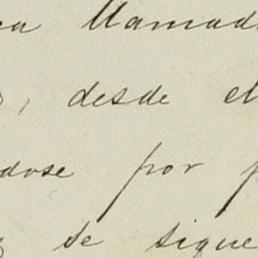 Llamad
, desde el
dose por
se sigue